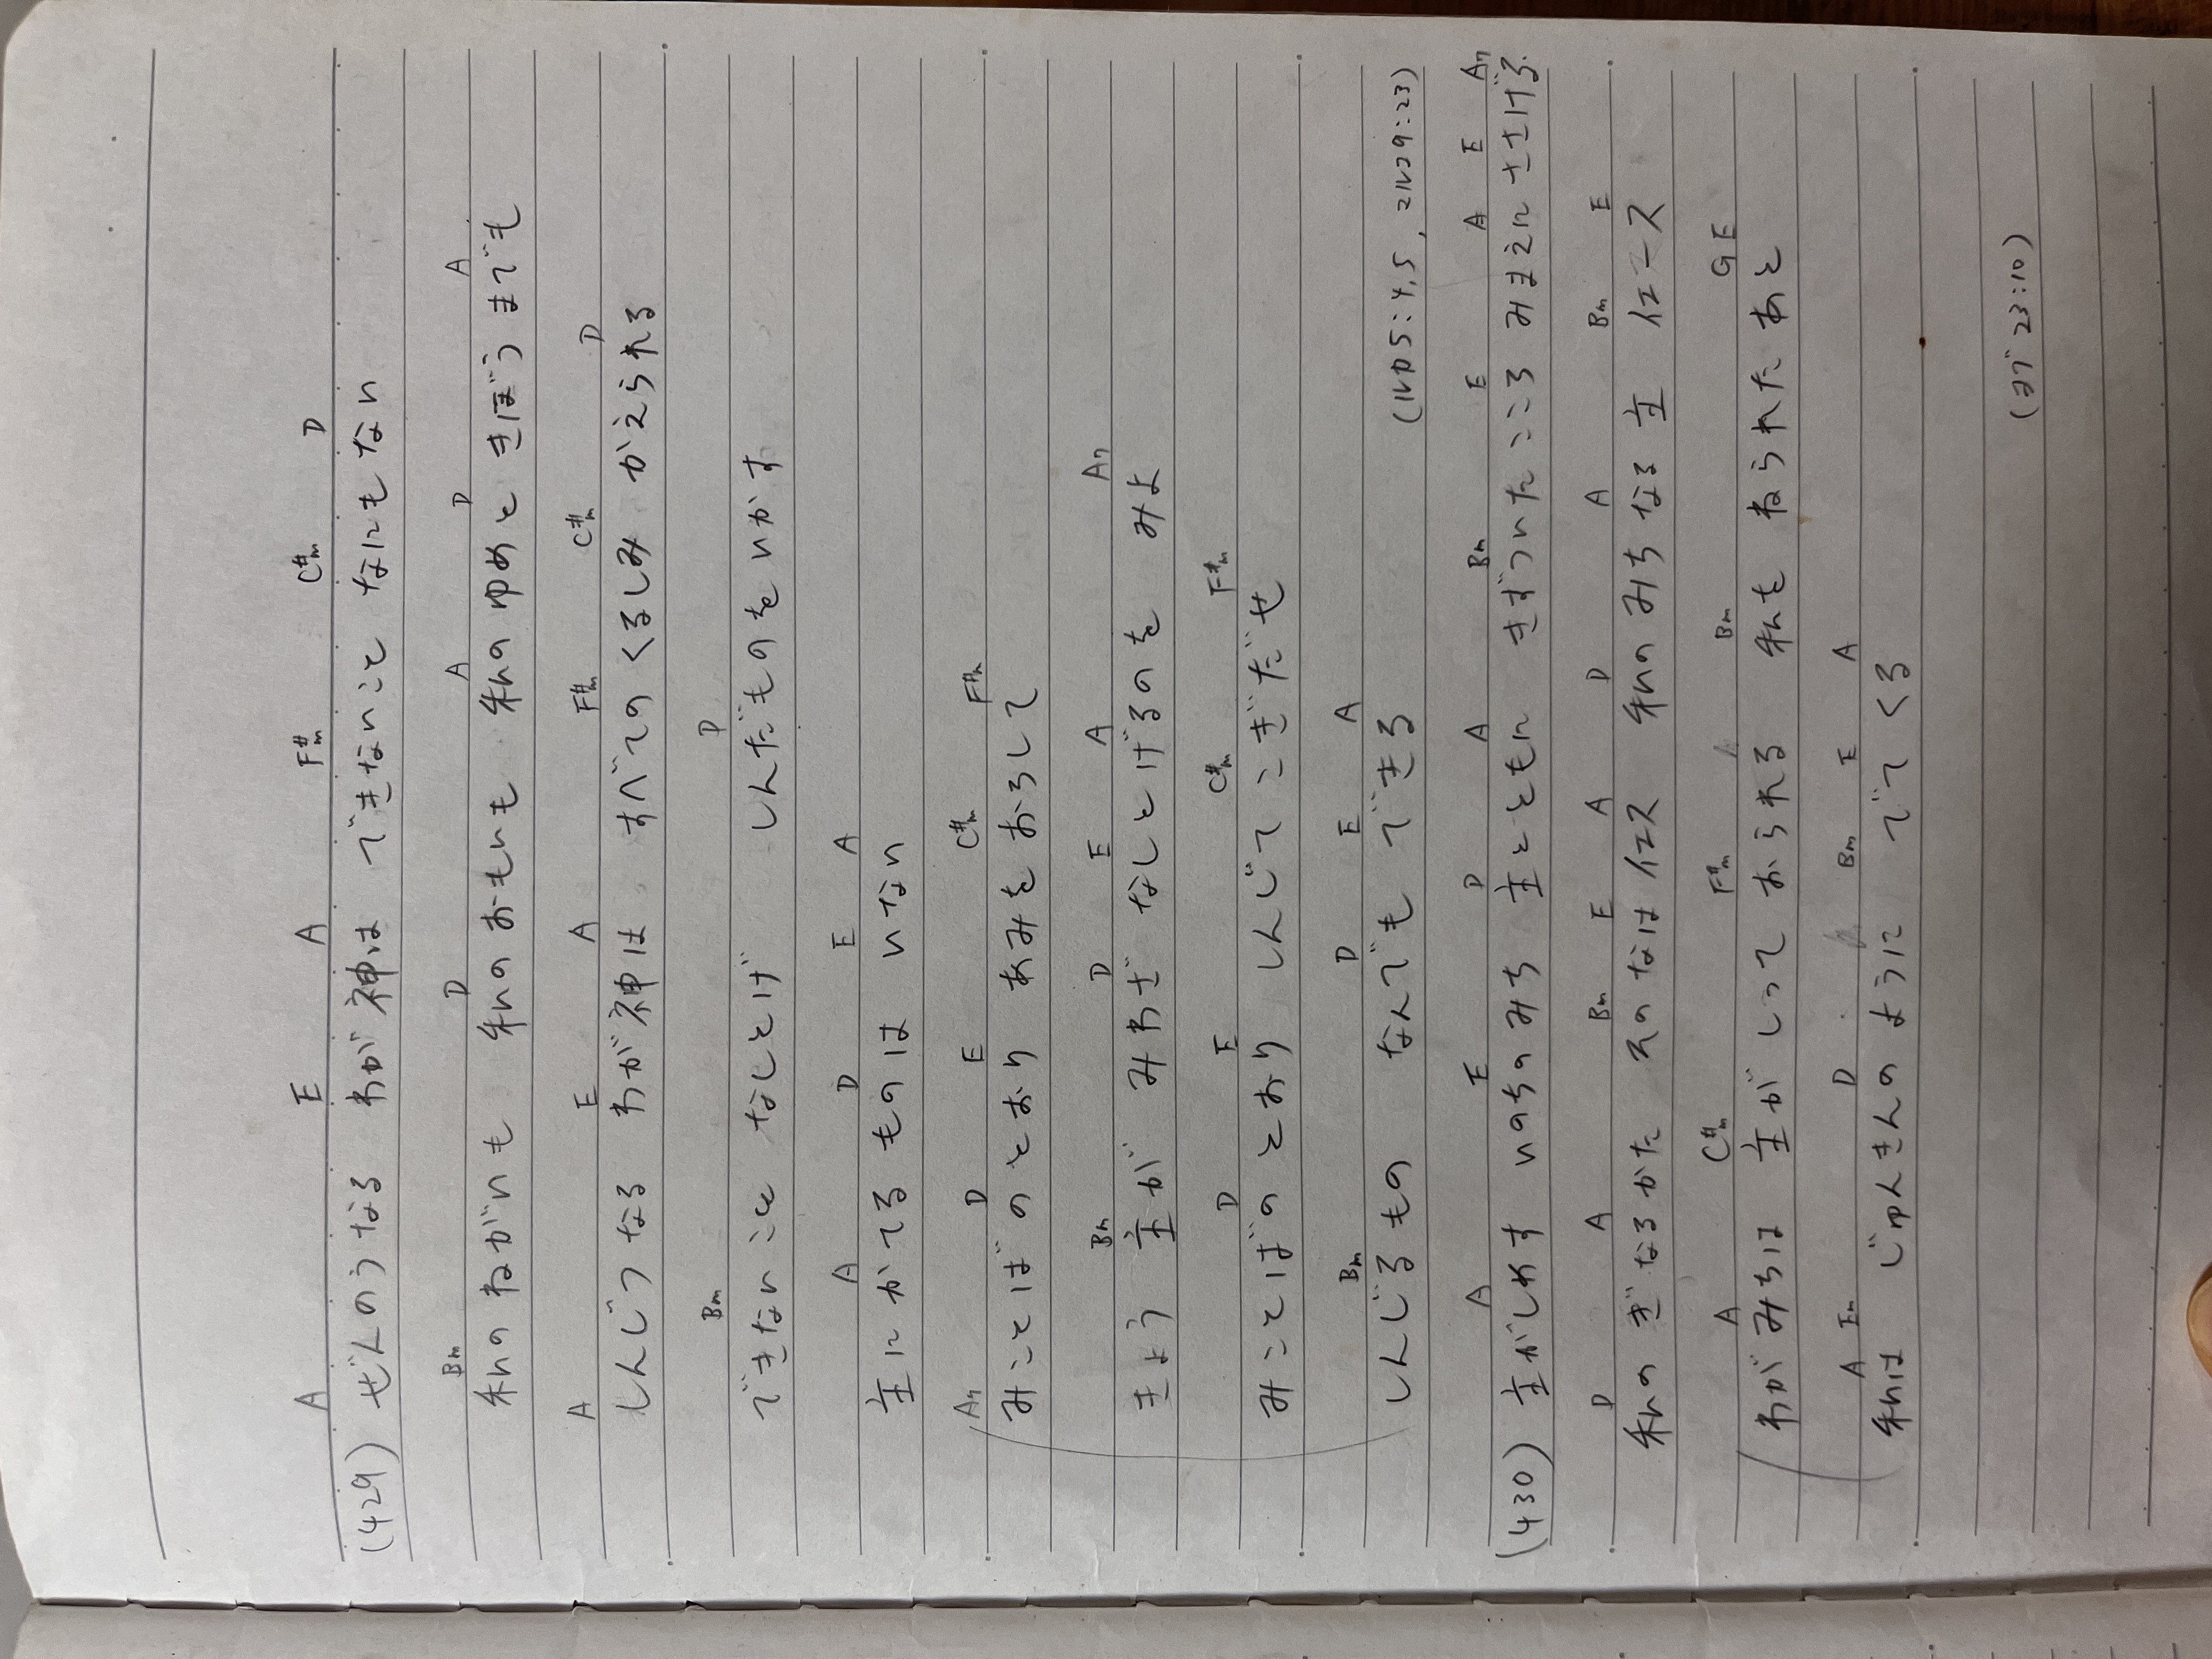 A E A F#m C#m D
(429) ぜんのうなる わが神は できないこと なにもない
Bm D A D A
私のねがいも 私のおもいも 私のゆめと きぼうまでも
A E A F#m C#m D
しんじつなる わが神は すべてのくるしみ かえられる
Bm D
できないこと なしとげ しんだものをいかす
A D E A
主にかてるものは いない
A7 D E C#m F#m
みことばのとおり あみをおろして
Bm D E A A7
きょう 主が みわざ なしとげるのを みよ
D E C#m F#m
みことばのとおり しんじてこぎだせ
Bm D E A
しんじるもの なんでも できる
(ルカ5:4,5, マルコ9:23)
A E D A Bm E A E A7
(430) 主がしめす いのちのみち 主とともに きずついたこころ みまえに ささげる
D A Bm E A D A Bm E
私の ぎなるかた そのなはイエス 私のみちなる主 イエース
A C#m F#m Bm G E
わがみちは 主が しって おられる 私を ねられた あと
A Em D Bm E A
私は じゅんきんの ように でてくる
(ヨブ 23:10)